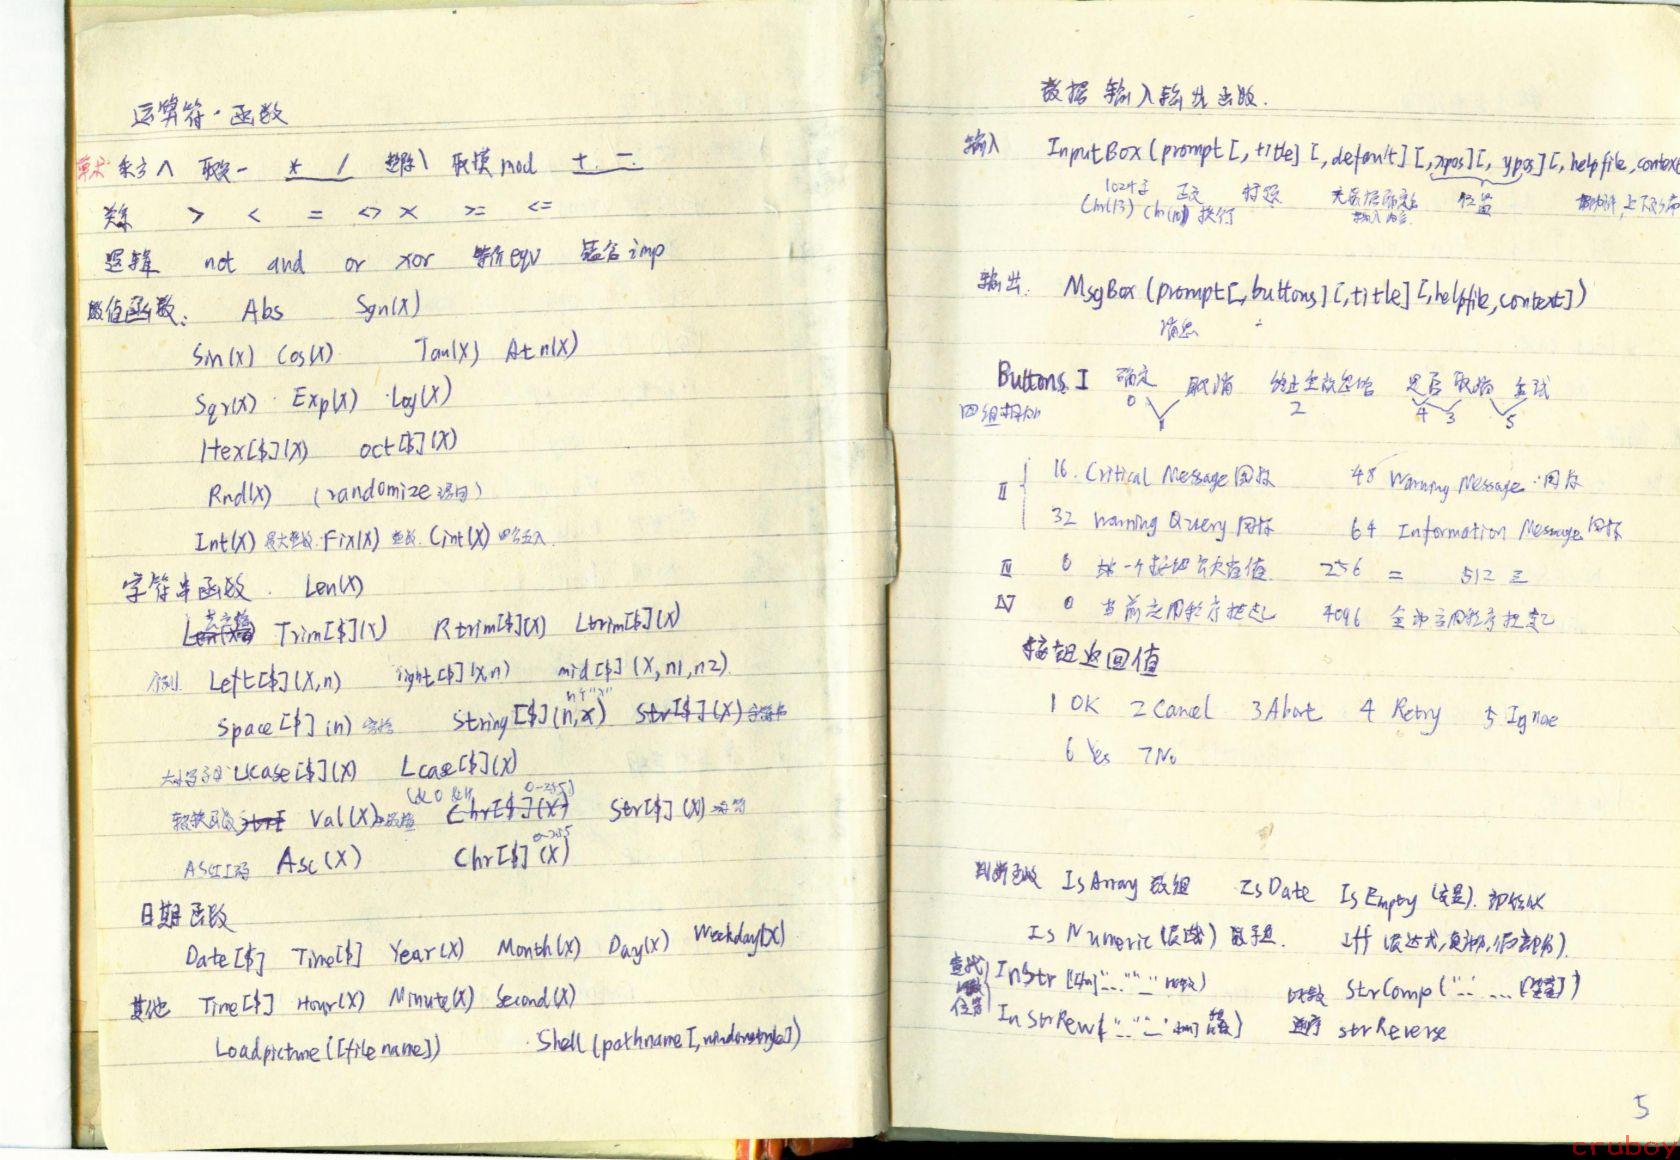 运算符·函数
算术 乘方 ∧ 取负 - * / 整除 \ 取模 mod + -
关系 > < = <> >= <=
逻辑 not and or xor 等价 eqv 蕴含 imp
数值函数: Abs Sgn(X)
Sin(X) Cos(X) Tan(X) Atn(X)
Sqr(X) Exp(X) Log(X)
Hex[$](X) oct[$](X)
Rnd(X) (randomize 语句)
Int(X) 最大整数 Fix(X) 整数 Cint(X) 四舍五入
字符串函数. Len(X)
去空格 Trim[$](X) Rtrim[$](X) Ltrim[$](X)
Left[$](X,n) right[$](X,n) mid[$](X,n1,n2)
n个"x"
Space[$](n) 空格 String[$](n,x) Str[$](X)
大小写字母 Ucase[$](X) Lcase[$](X)
Val(X) Chr[$](X) Str[$](X)
0-255
ASCII码 Asc(X) Chr[$](X)
日期函数
Date[$] Time[$] Year(X) Month(X) Day(X) Weekday(X)
其他 Time[$] Hour(X) Minute(X) Second(X)
Loadpicture([filename]) Shell(pathname[,windowstyle])
数据输入输出函数.
输入 InputBox(prompt[,title][,default][,xpos][,ypos][,helpfile,context
1024字 标题 位置
Chr(13) Chr(10) 换行 输入内容
输出. MsgBox(prompt[,buttons][,title][,helpfile,context])
消息
Buttons I 确定 取消 终止重试忽略 是否 取消 重试
0 1 2 4 3 5
四组相加
II 16. Critical Message 图标 48 Warning Message 图标
32 Warning Query 图标 64 Information Message 图标
III 0 第一个按钮为缺省值 256 二 512 三
IV 0 当前应用程序挂起 4096 全部应用程序挂起
按钮返回值
1 OK 2 Cancel 3 Abort 4 Retry 5 Ignoe
6 Yes 7 No
判断函数 IsArray 数组 IsDate IsEmpty (变量). 初始化
IsNumeric(表达式) 数字 Iff (表达式,真部分,假部分).
查找 InStr 比较 StrComp
位置 InStrRew 逆序 strReverse
5
cruboy